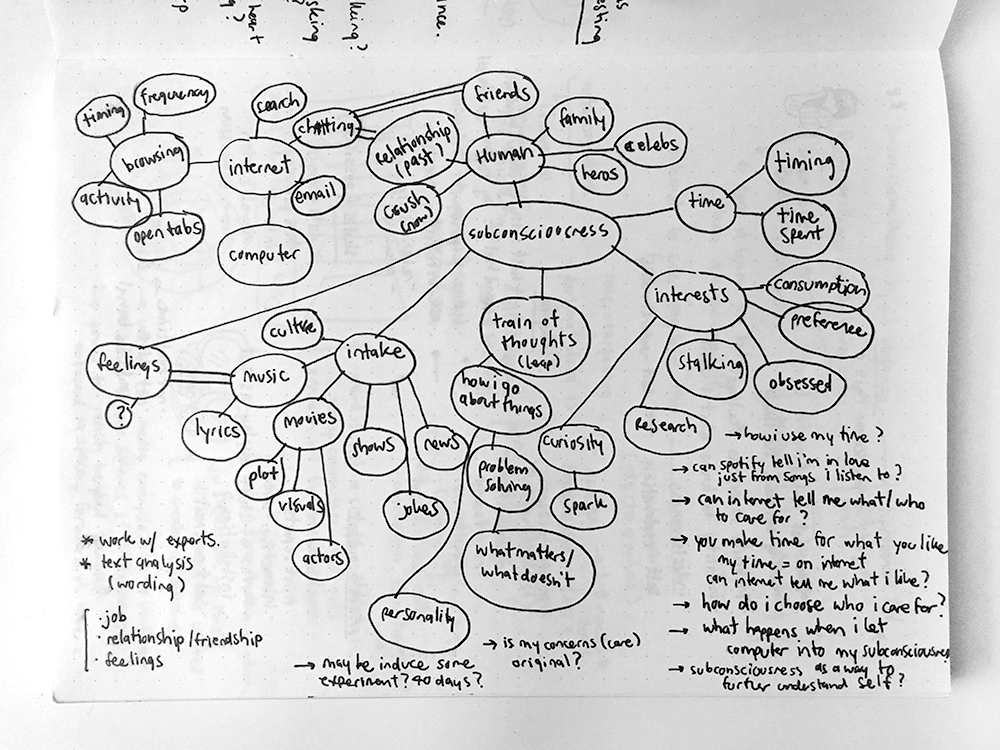 ance.
sting
lking?
sking
heart
?
timing
frequency
browsing
activity
open tabs
search
chatting
internet
email
computer
friends
relationship
(past)
Human
family
celebs
heros
crush
(now)
subconsciousness
time
timing
time
spent
interests
consumption
preference
stalking
obsessed
research
curiosity
spark
train of
thoughts
(leap)
how i go
about things
problem
solving
what matters/
what doesn't
personality
feelings
?
music
lyrics
culture
intake
movies
plot
visuals
actors
shows
jokes
news
* work w/ experts.
* text analysis
(wording)
· job
· relationship/friendship
· feelings
→ maybe induce some
experiment? 40 days?
→ is my concerns (care)
original?
→ how i use my time?
→ can spotify tell i'm in love
just from songs i listen to?
→ can internet tell me what/who
to care for?
→ you make time for what you like
my time = on internet
can internet tell me what i like?
→ how do i choose who i care for?
→ what happens when i let
computer into my subconsciousness
→ subconsciousness as a way to
further understand self?